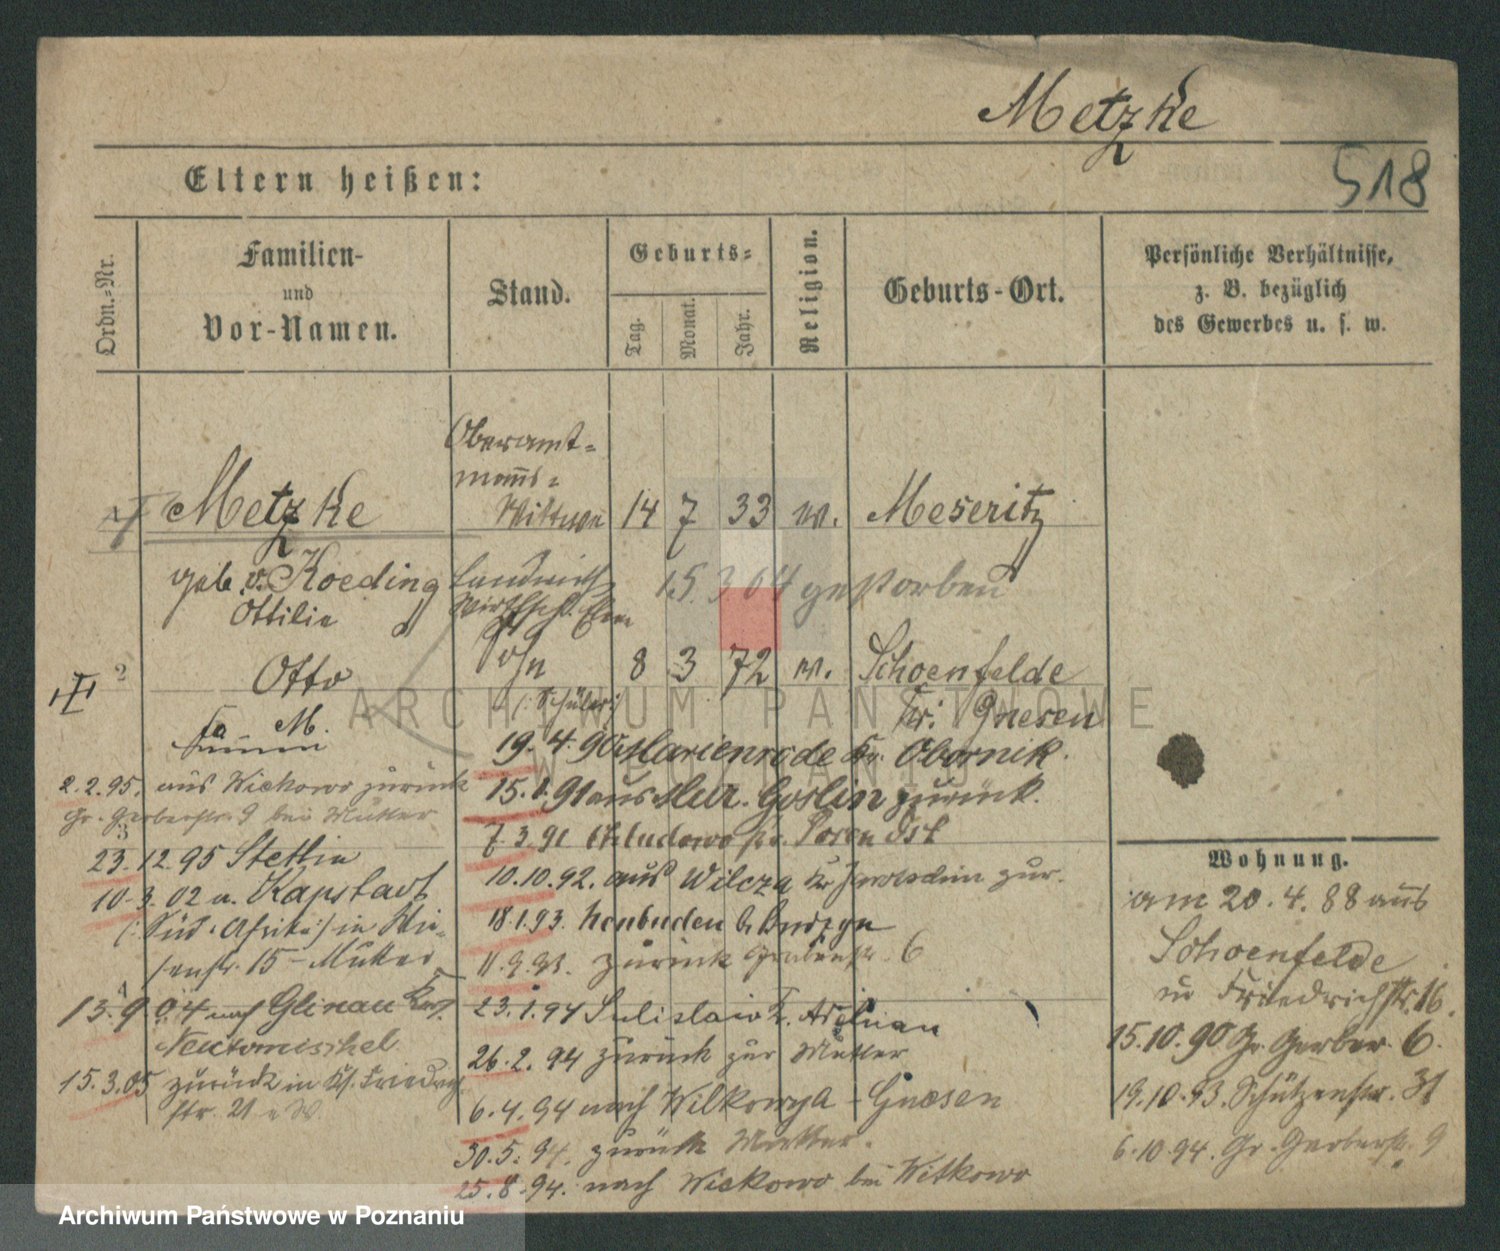 Metzke
518
Eltern heißen:
Ordn.-Nr.
Familien-
und
Vor-Namen.
Stand.
Geburts-
Tag.
Monat.
Jahr.
Religion.
Geburts-Ort.
Persönliche Verhältnisse,
z. B. bezüglich
des Gewerbes u. s. w.
Oberamt-
manns-
Metzke Wittwe 14 7 33 w. Meseritz
geb. v. Koeding
Ottilie
15 3 04 gestorben
2 Otto Sohn 8 3 72 w. Schoenfelde
(: Schüler :) Kr. Gnesen
M.
19. 4. 90 Marienrode Kr. Obornik.
15. 1. 91 aus Mur. Goslin zurück.
7. 3. 91 Chludowo Posen Ost
10. 10. 92. aus Wilcza Kr Jarotschin zur.
18. 1. 93. b Budzyn
11. 9. 93. zurück 6
23. 1. 94
26. 2. 94 zurück zur Mutter
6. 4. 94 nach Wilkowya - Gnesen
30. 5. 94. zurück Mutter.
25. 8. 94. nach Wiekowo bei Witkowo
2. 2. 95. aus Wiekowo zurück
Gr. Gerberstr. 9 bei Mutter
3
23. 12 95 Stettin
10. 3. 02 a. Kapstadt
(: Süd-Afrika :) in
15 - Mutter
4
13. 9 04 nach Glinau
Neutomischel
15. 3. 05 zurück in
str. 21
Wohnung.
am 20. 4. 88 aus
Schoenfelde
in Friedrichstr. 16.
15. 10. 90 Gr. Gerber. 6.
19. 10. 93. Schützenstr. 31
6. 10 94. Gr. Gerberstr. 9
ARCHIWUM PAŃSTWOWE
W POZNANIU
Archiwum Państwowe w Poznaniu